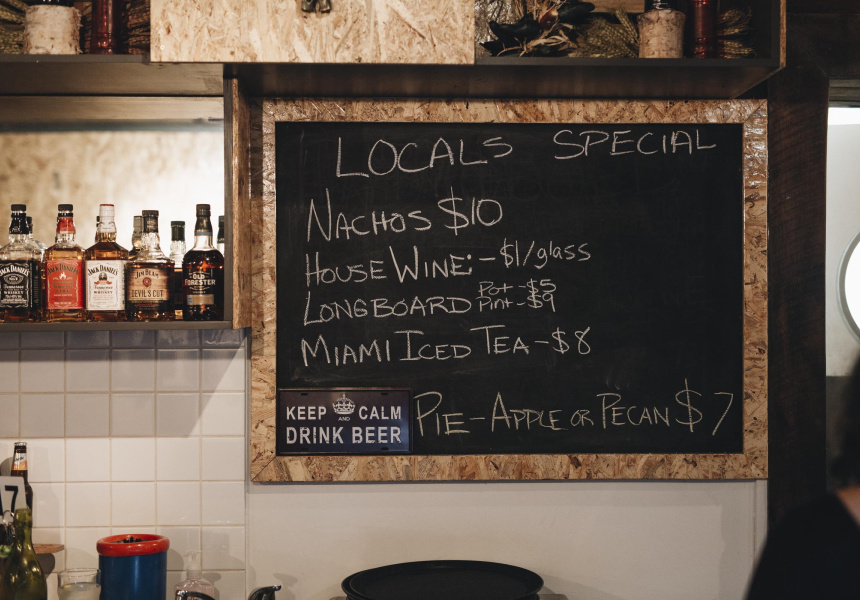 LOCALS SPECIAL
NACHOS $10
HOUSE WINE:-$1/glass
LONGBOARD Pot-$5
Pint-$9
MIAMI ICED TEA-$8
PIE-APPLE OR PECAN $7
KEEP AND CALM
DRINK BEER
JACK DANIEL'S
JACK DANIEL'S
JACK DANIEL'S
JIM BEAM
DEVIL'S CUT
OLD FORESTER
7